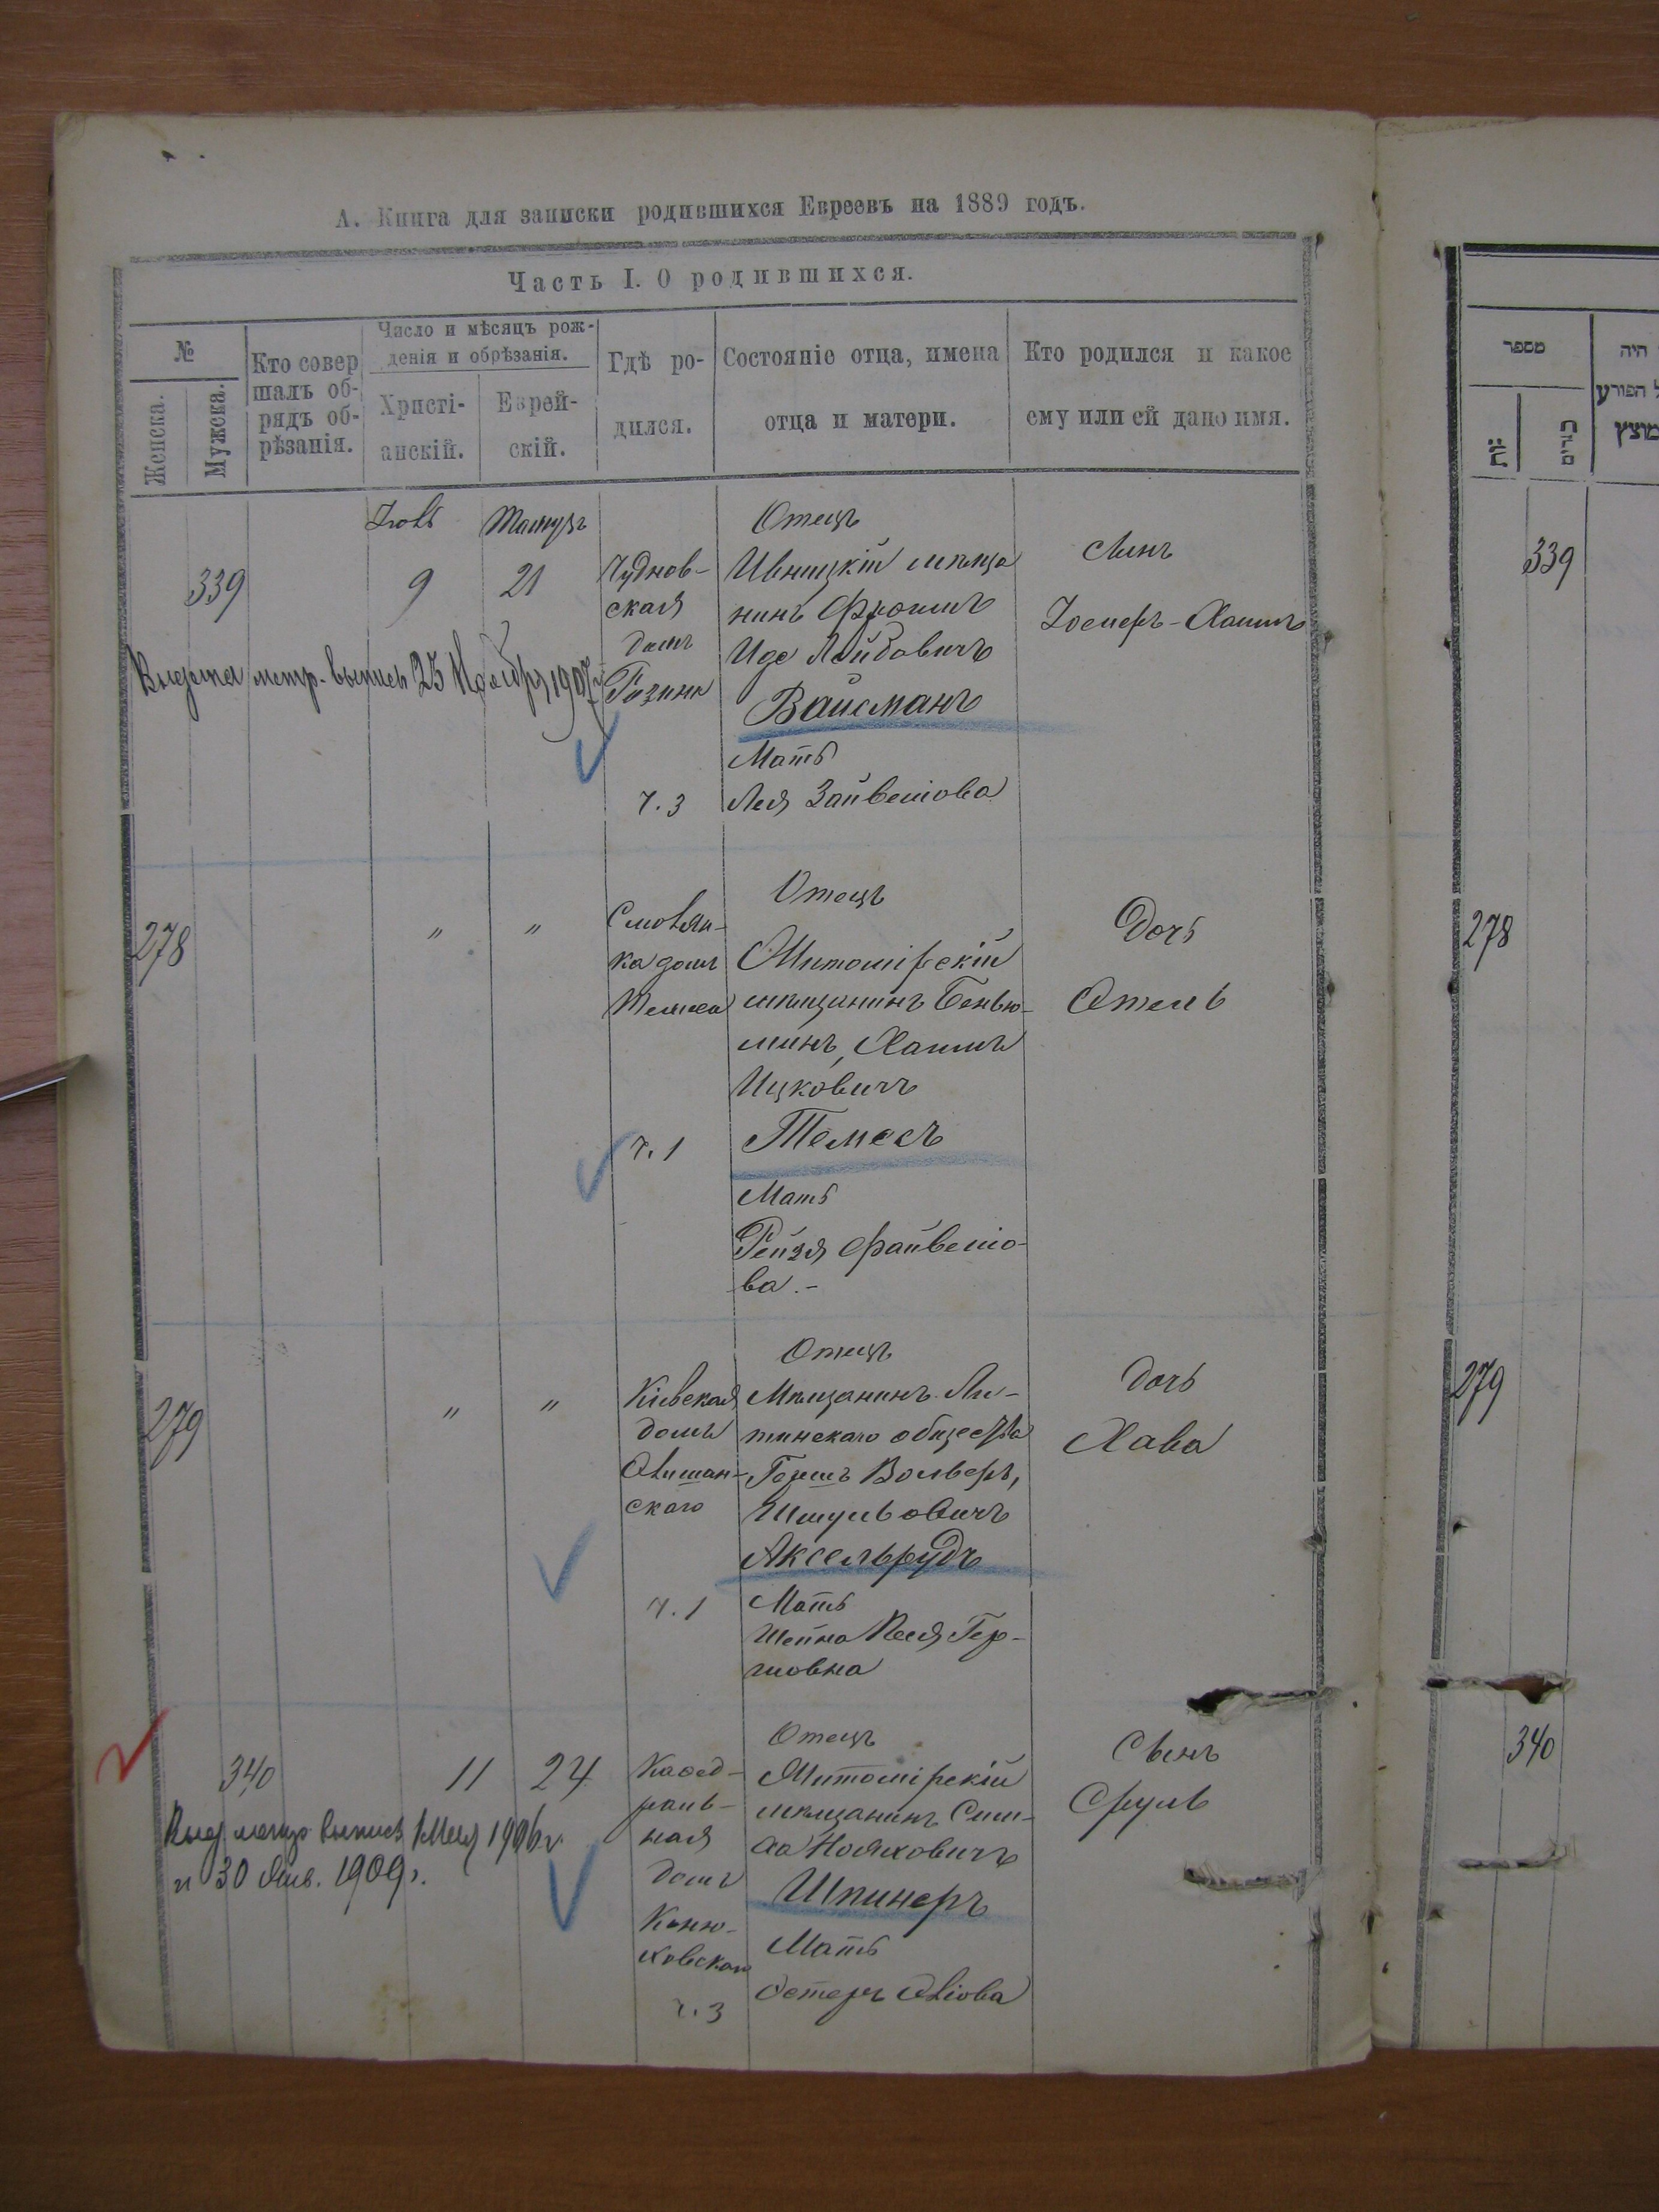 А. Книга для записки родившихся Евреевъ на 1889 годъ.
Часть I. О родившихся.
№
Женска.
Мужска.
Кто совер
шалъ об-
рядъ об-
рѣзанія.
Число и мѣсяцъ рож-
денія и обрѣзанія.
Христі-
анскій.
Еврей-
скій.
Гдѣ ро-
дился.
Состояніе отца, имена
отца и матери.
Кто родился и какое
ему или ей дано имя.
Іюль
Тамузъ
339
9
21
Чуднов-
ская
домъ
Отецъ
Ивницкій мѣща
нинъ Фроимъ
Лейбовичъ
Вайсманъ
Мать
Лея
ч. 3
Сынъ
Іосперъ-Хаимъ
Выдана метр. выпись 25 Ноября 1907 г
278
"
"
ка домъ
Темеса
ч. 1
Отецъ
Житомірскій
мѣщанинъ Бенью-
минъ, Хаимъ
Ицковичъ
Темесъ
Мать
Рейзя Файвешо-
ва.-
Дочь
Этель
279
"
"
Кіевская
домъ
скаго
ч. 1
Отецъ
Мѣщанинъ Ли-
тинскаго общества
Гершъ Вольверъ,
Шмульовичъ
Аксельрудъ
Мать
Шейна Песя Гер-
шовна
Дочь
Хава
340
11
24
Каѳед-
раль-
ная
домъ
Коню-
ховскаго
ч. 3
Отецъ
Житомірскій
мѣщанинъ Сим-
ха Нояховичъ
Шпинеръ
Мать
Эстеръ
Сынъ
Сруль
Выд. метр. выпись 1 Мая 1906 г.
и 30 Янв. 1909 г.
היה
מספר
הפורע
מוצץ
339
278
279
340